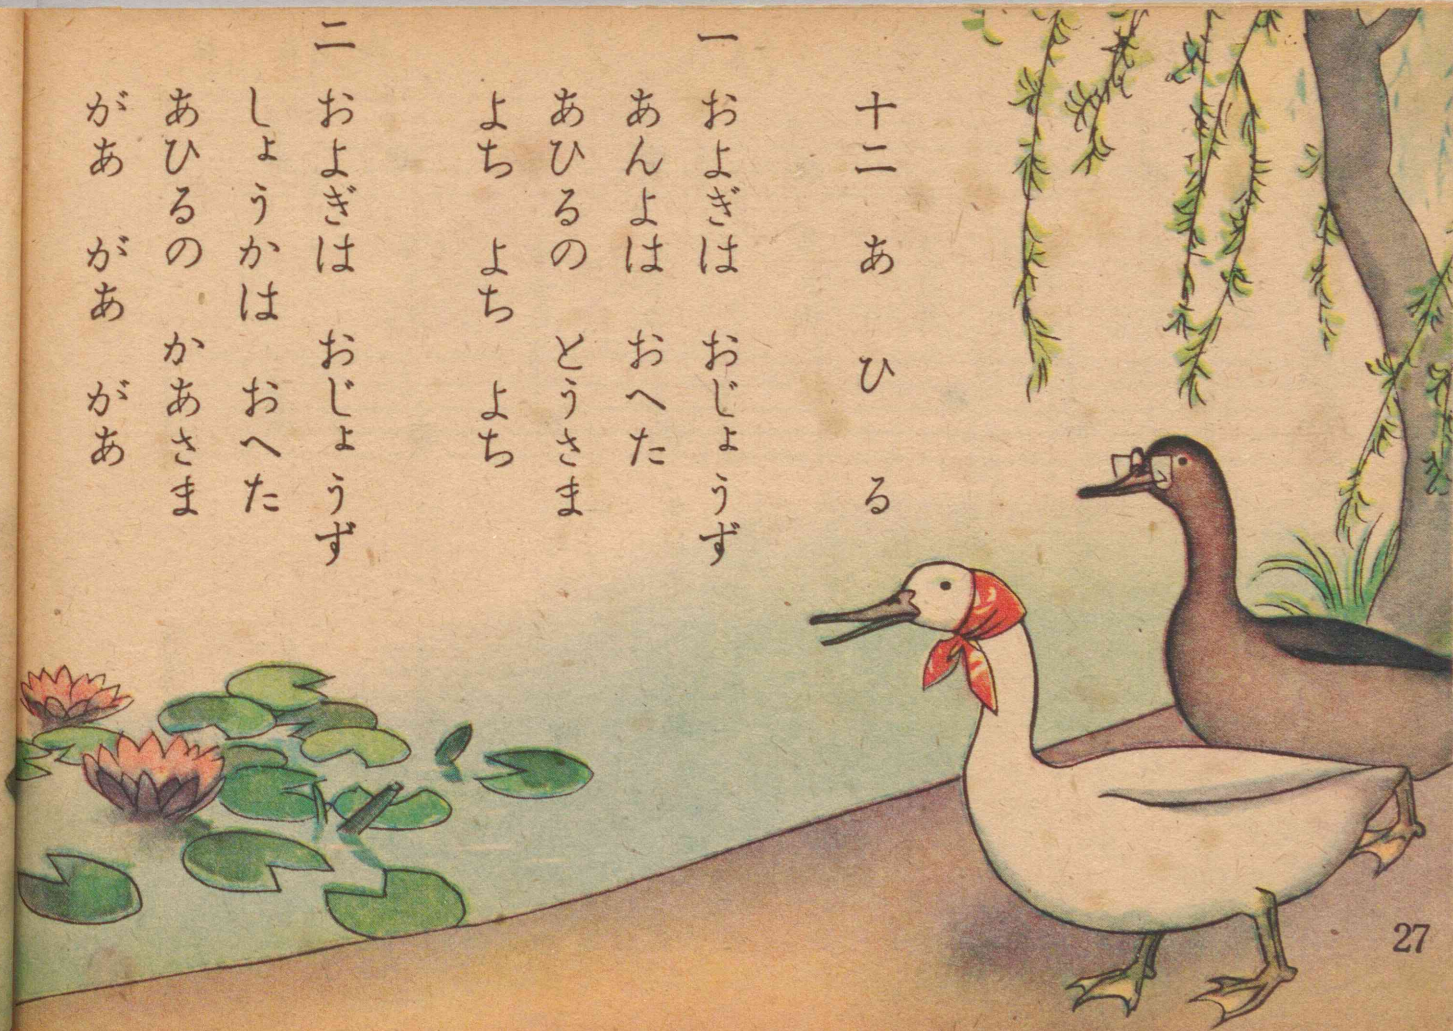 十二 あひる
一 およぎは おじょうず
あんよは おへた
あひるの とうさま
よち よち よち
二 およぎは おじょうず
しょうかは おへた
あひるの かあさま
があ があ があ
27